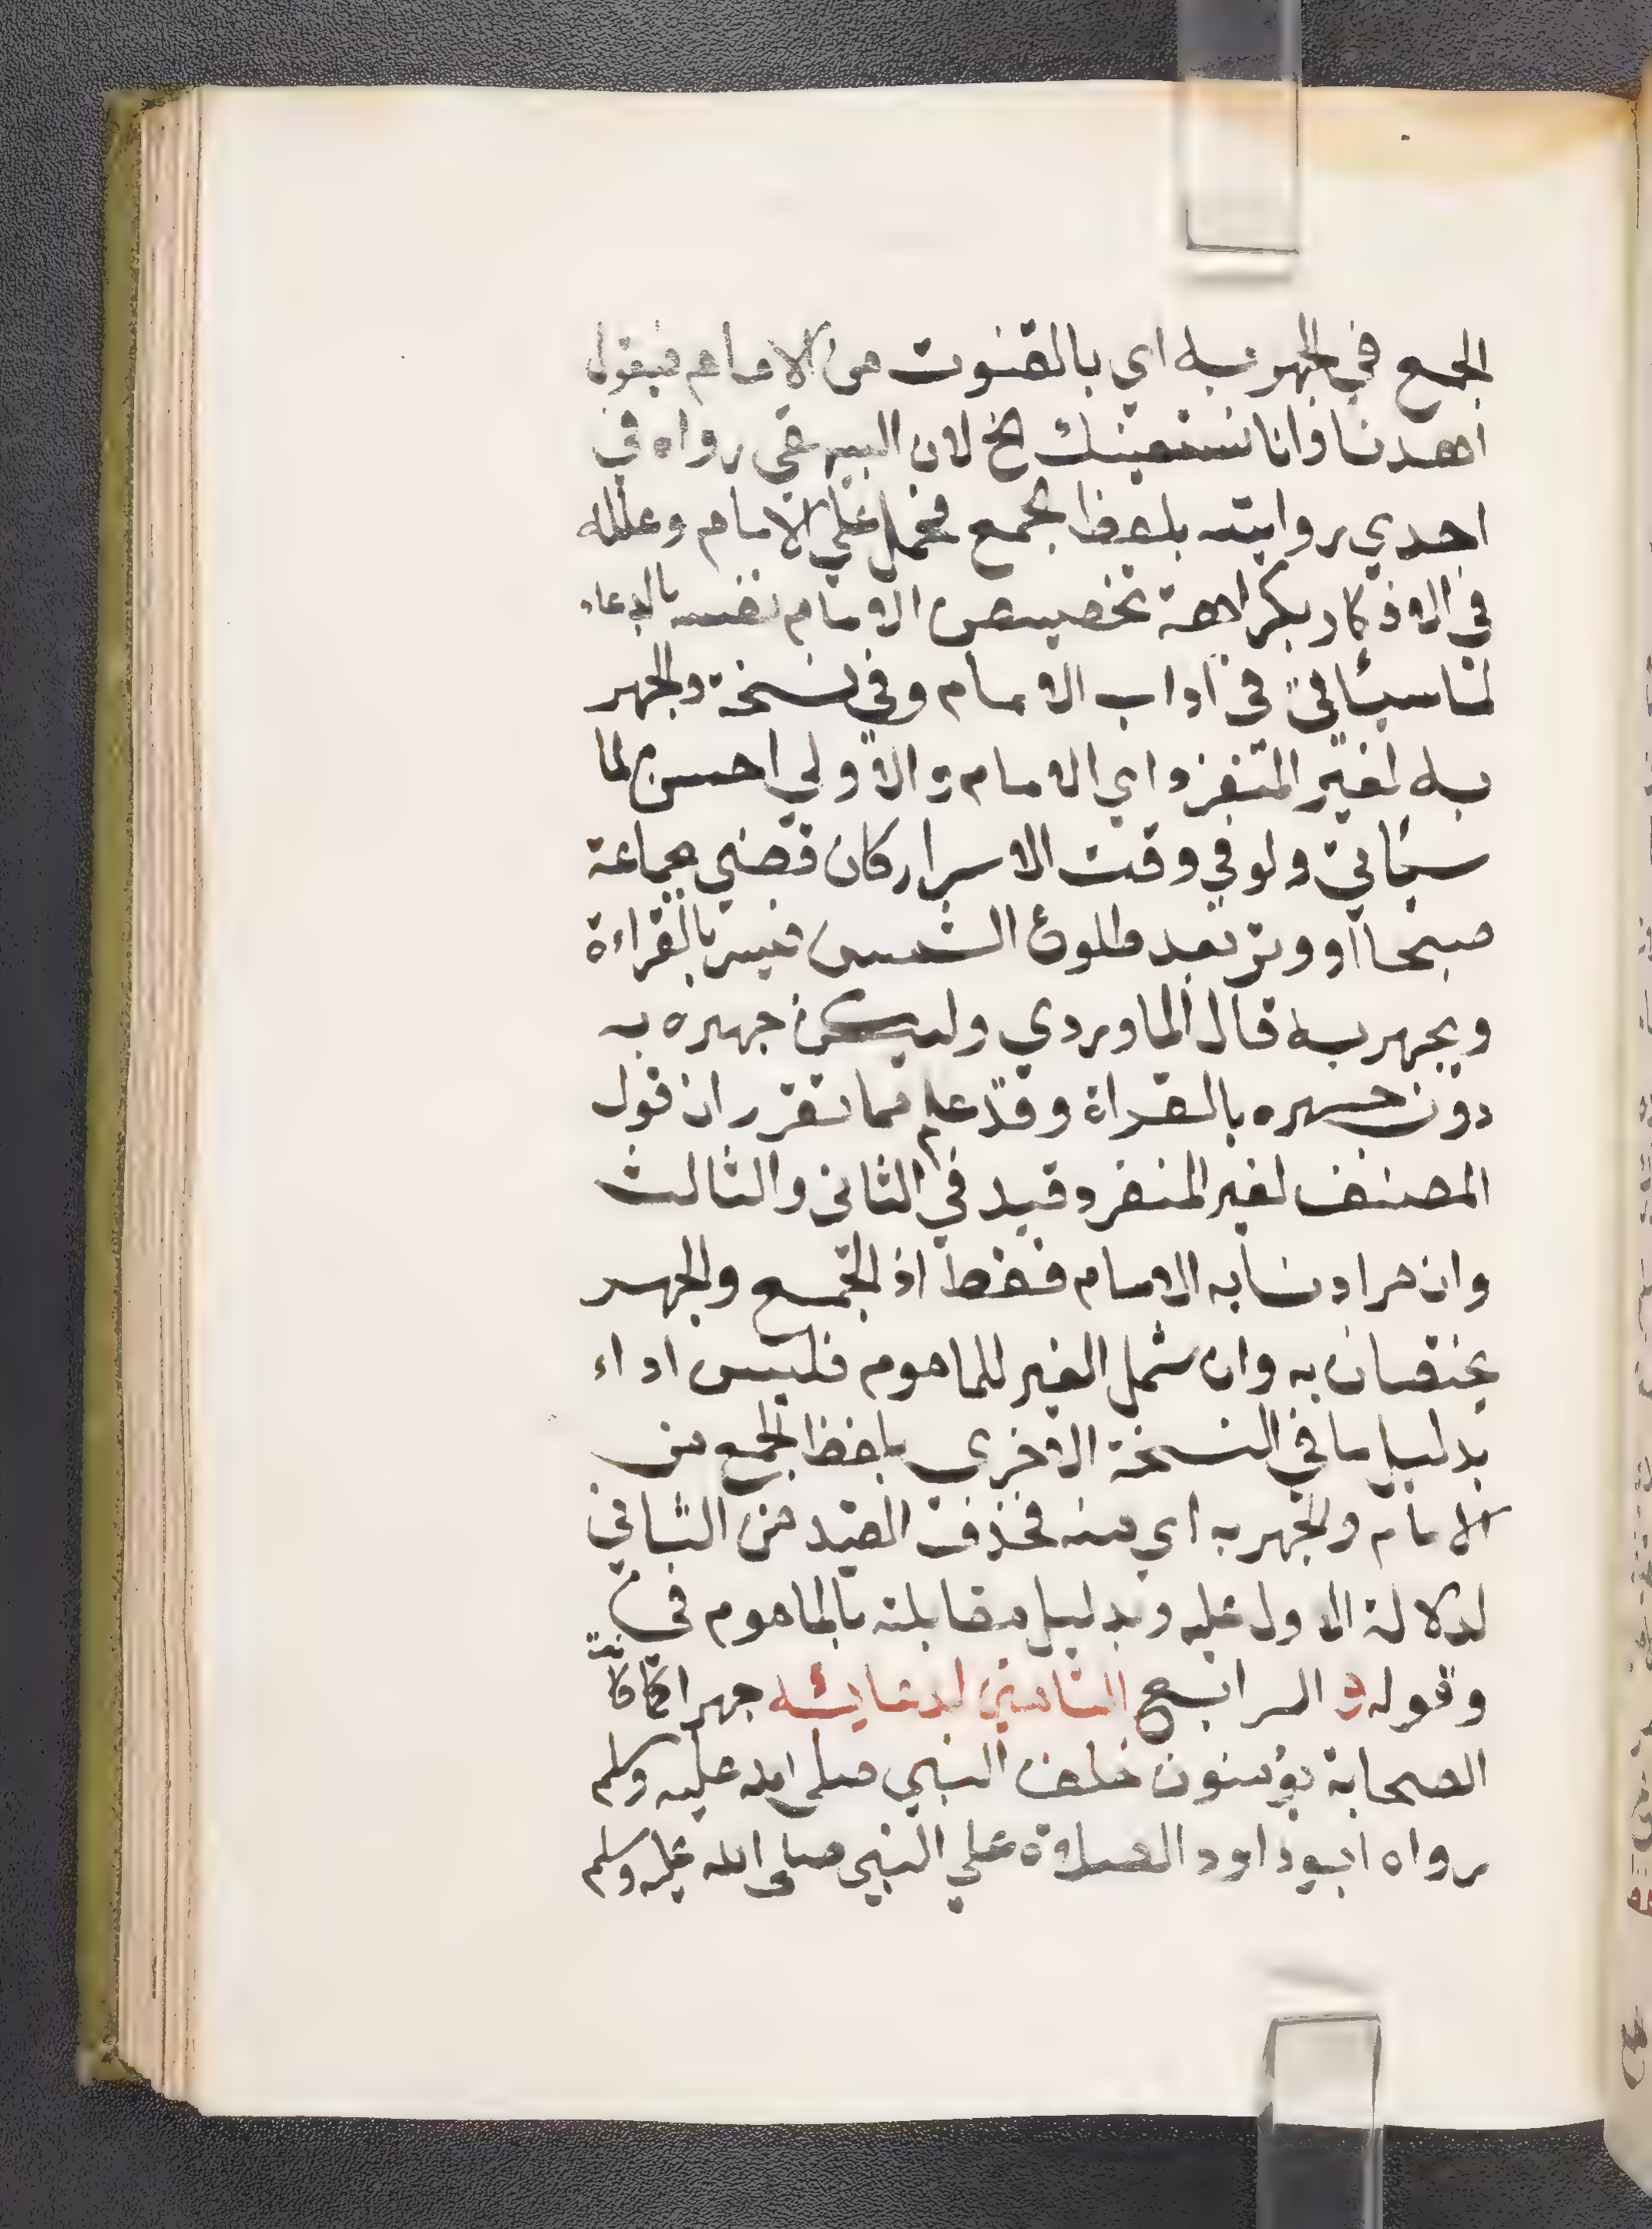 الجمع في الجهر به اي بالقنوت من الامام فيقول
اهدنا وانا نستعينك الخ لان البيهقي رواه في
احدي روايتيه بلفظ الجمع فحمل علي الامام وعلله
في الاذكار بكراهة تخصيص الامام نفسه بالدعاء
لما سياتي في آداب الامام وفي نسخة والجهر
به لغير المنفرد اي الامام والاولي احسن لما
سياتي ولو في وقت الاسرار كان قضي جماعة
صبحا او وتر بعد طلوع الشمس فيسر بالقراءة
ويجهر به قال الماوردي وليكن جهره به
دون جهره بالقراة وقد علم مما تقرر ان قول
المصنف لغير المنفرد قيد في الثاني والثالث
وان مرادنا به الامام فقط اذ الجمع والجهر
يختصان به وان شمل الغير للماموم فليس اداء
بدليل ما في النسخة الاخري بلفظ الجمع من
الامام والجهر به اي منه فحذف القيد من الثاني
لدلالة الاول عليه وبدليل مقابلته بالماموم في
وقوله و الرابع التامين لدعائه جهرا كما كانت
الصحابة يؤمنون خلف النبي صلى الله عليه وسلم
رواه ابو داود الصلاة علي النبي صلى الله عليه وسلم